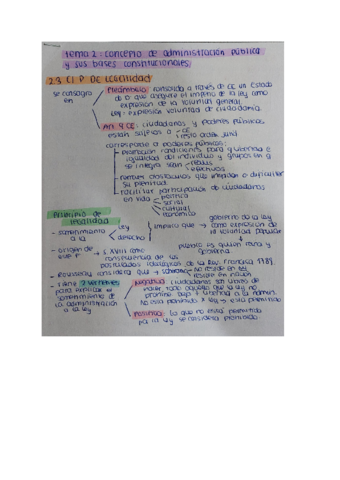 Tema 2: concepto de administración pública
y sus bases constitucionales
2.3 El P. DE LEGALIDAD
se consagra en
Preámbulo: consolida a través de CE un Estado
de D que asegure el imperio de la ley como
expresión de la voluntad general
Ley: expresión voluntad de ciudadanía
Art. 9 CE: ciudadanos y poderes públicos
están sujetos a CE
resto orden jurid
corresponde a poderes públicos:
promoción condiciones para q libertad e
igualdad de individuo y grupos en q
se integra sean reales
efectivas
remover obstáculos que impidan o dificulten
su plenitud
facilitar participación de ciudadanos
en vida política
social
cultural
económica
Principio de
legalidad
sometimiento
a la ley
derecho
imperio que
gobierno de la ley
como expresión de
la voluntad popular
pueblo es quien reina y
gobierna
origen de
este P
S. XVIII como
consecuencia de los
postulados ideológicos de la Rev. Francesa 1789.
Rousseau considera que soberanía no reside en rey
reside en nación
tiene 2 vertientes
para explicar el
sometimiento de
la administración
a la ley
Negativa: ciudadanos son libres de
hacer todo aquello que la ley no
prohíbe
No está prohibido x ley → está permitido
Positiva: lo que no está permitido
por la ley se considera prohibido.